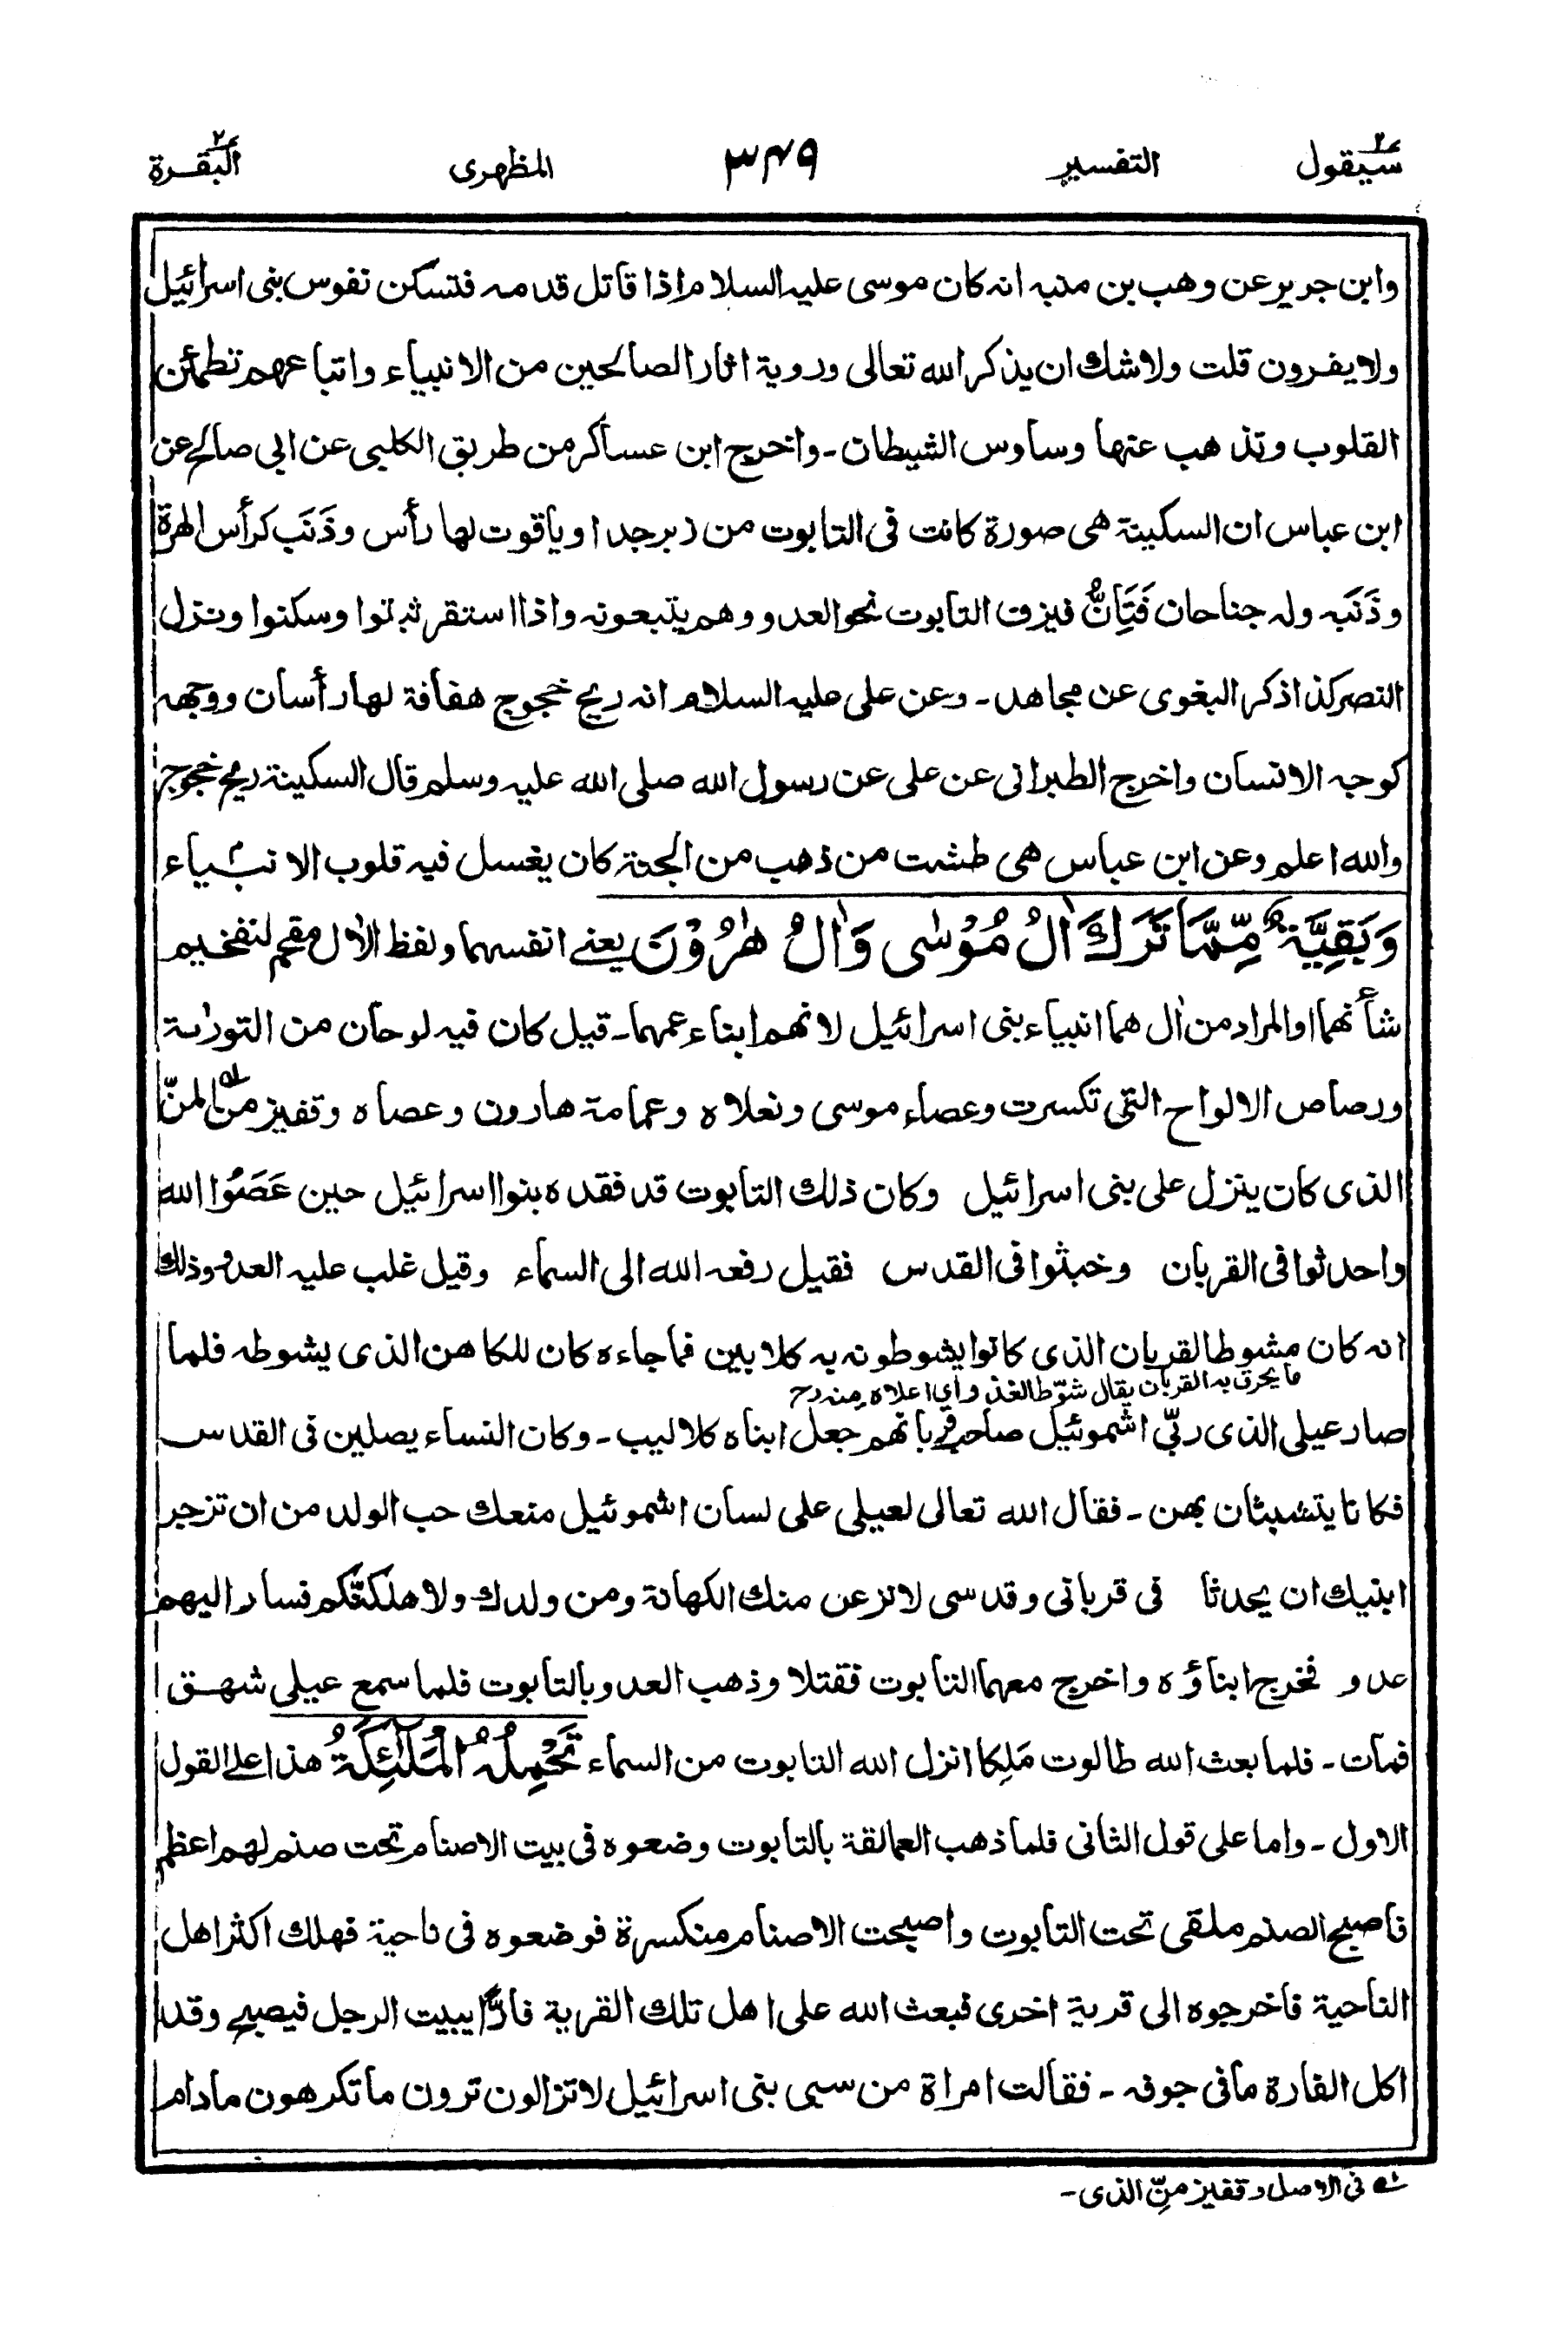 سيقول ٢ التفسير ٣٤٩ المظهرى البقرة ٢
وابن جرير عن وهب بن منبه انه كان موسى عليه السلام اذا قاتل قدمه فتسكن نفوس بنى اسرائيل
ولا يفرون قلت ولا شك ان يذكر الله تعالى وروية اثار الصالحين من الانبياء واتباعهم تطمئن
القلوب وتذهب عنها وساوس الشيطان - واخرج ابن عساكر من طريق الكلبى عن ابى صالح عن
ابن عباس ان السكينة هى صورة كانت فى التابوت من زبرجد او ياقوت لها رأس وذَنَب كرأس الهرة
وذَنَبه وله جناحان فَتَاِنُّ فيزف التابوت نحو العدو وهم يتبعونه واذا استقر ثبتوا وسكنوا ونزل
النصر كذا ذكر البغوى عن مجاهد - وعن على عليه السلام انه ريح خجوج هفافة لها رأسان ووجهه
كوجه الانسان واخرج الطبرانى عن على عن رسول الله صلى الله عليه وسلم قال السكينة ريح خجوج
والله اعلم وعن ابن عباس هى طشت من ذهب من الجنة كان يغسل فيه قلوب الانبياء
وَبَقِيَّةٌ مِّمَّا تَرَكَ اٰلُ مُوْسٰى وَاٰلُ هٰرُوْنَ يعنے انفسهما ولفظ الاٰل مقحم لتفخيم
شأنهما او المراد من اٰل هما انبياء بنى اسرائيل لانهم ابناء عمهما - قيل كان فيه لوحان من التورٰىة
ورصاص الالواح التى تكسرت وعصاء موسى ونعلاه وعمامة هارون وعصاه وقفيز من المنّ
الذى كان ينزل على بنى اسرائيل وكان ذلك التابوت قد فقده بنوا اسرائيل حين عَصَوُا الله
واحدثوا فى القربان وخبثوا فى القدس فقيل رفعه الله الى السماء وقيل غلب عليه العدو وذلك
انه كان مشوط القربان الذى كانوا يشوطونه به كلابين فما جاءه كان للكاهن الذى يشوطه فلما
ما يحرق به القربان يقال شوّط الغذ واى اعلاه منه رح
صار عيلى الذى ربّى اشموئيل صاحب قربانهم جعل ابناه كلاليب - وكان النساء يصلين فى القدس
فكانا يتشبثان بهن - فقال الله تعالى لعيلى على لسان اشموئيل منعك حب الولد من ان تزجر
ابنيك ان يحدثا فى قربانى وقدسى لانزعن منك الكهانة ومن ولدك ولاهلكنّكم فسار اليهم
عدو فخرج ابناؤه واخرج معهما التابوت فقتلا وذهب العدو بالتابوت فلما سمع عيلى شهق
فمات - فلما بعث الله طالوت مَلِكا انزل الله التابوت من السماء تَحْمِلُهُ الْمَلٰٓئِكَةُ هذا على القول
الاول - واما على قول الثانى فلما ذهب العمالقة بالتابوت وضعوه فى بيت الاصنام تحت صنم لهم اعظم
فاصبح الصنم ملقى تحت التابوت واصبحت الاصنام منكسرة فوضعوه فى ناحية فهلك اكثر اهل
الناحية فاخرجوه الى قرية اخرى فبعث الله على اهل تلك القرية فارًا يبيت الرجل فيصبح وقد
اكل الفارة مافى جوفه - فقالت امراة من سبى بنى اسرائيل لا تزالون ترون ما تكرهون مادام
له فى الاصل وقفيز منّ الذى -